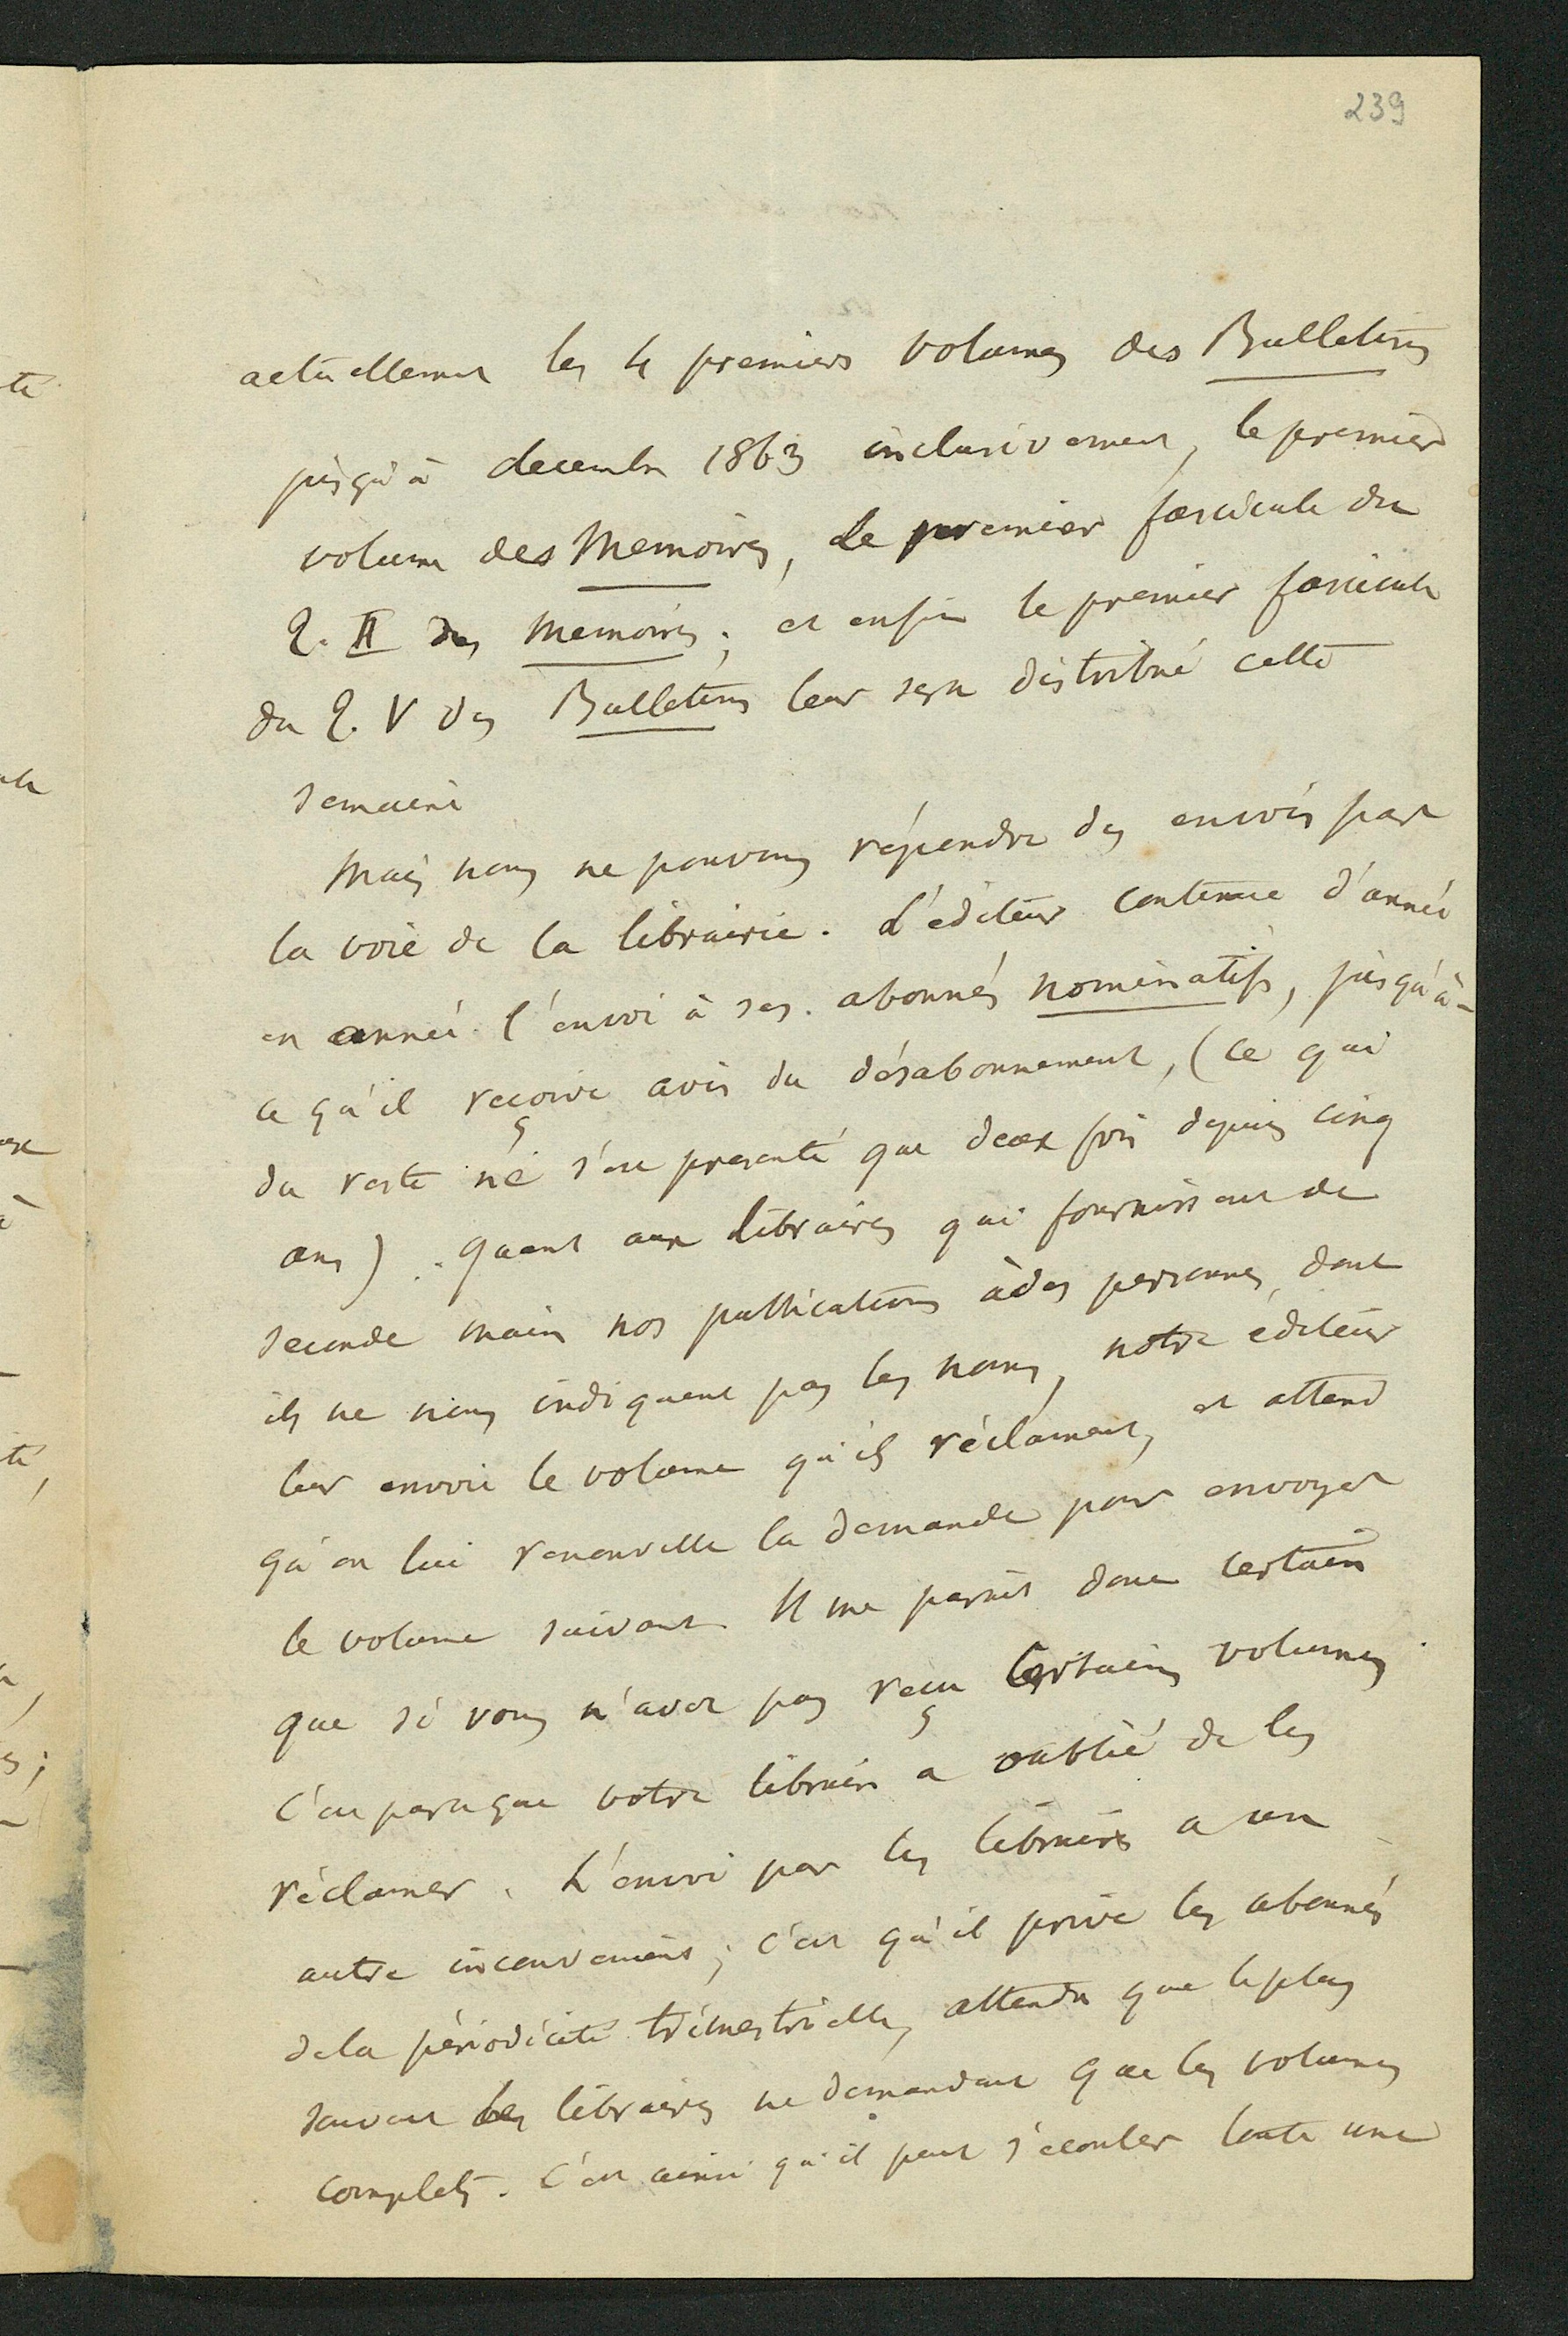 239
actuellement les 4 premiers volumes des Bulletins
jusqu'à decembre 1863 inclusivement, le premier
volume des Memoires, le premier fascicule du
T. II des Memoires; et enfin le premier fascicule
du T. V des Bulletins leur sera distribué cette
semaine
Mais nous ne pouvons répondre des envois par
la voie de la librairie. L'éditeur continue d'année
en année l'envoi à ses abonnés nominatifs, jusqu'à-
ce qu'il reçoive avis du désabonnement, (ce qui
du reste ne s'est presenté que deux fois depuis cinq
ans). Quant aux libraires qui fournissent de
seconde main nos publications à des personnes dont
ils ne nous indiquent pas les noms, notre editeur
leur envoie le volume qu'ils réclament, et attend
qu'on lui renouvelle la demande pour envoyer
le volume suivant. Il me parait donc certain
que si vous n'avez pas reçu certains volumes
c'est parceque votre libraire a oublié de les
réclamer. L'envoi par les libraires a un
autre inconvenient; c'est qu'il prive les abonnés
de la périodicité trimestrielle, attendu que le plus
souvent les libraires ne demandent que les volumes
complets. C'est ainsi qu'il peut s'ecouler toute une